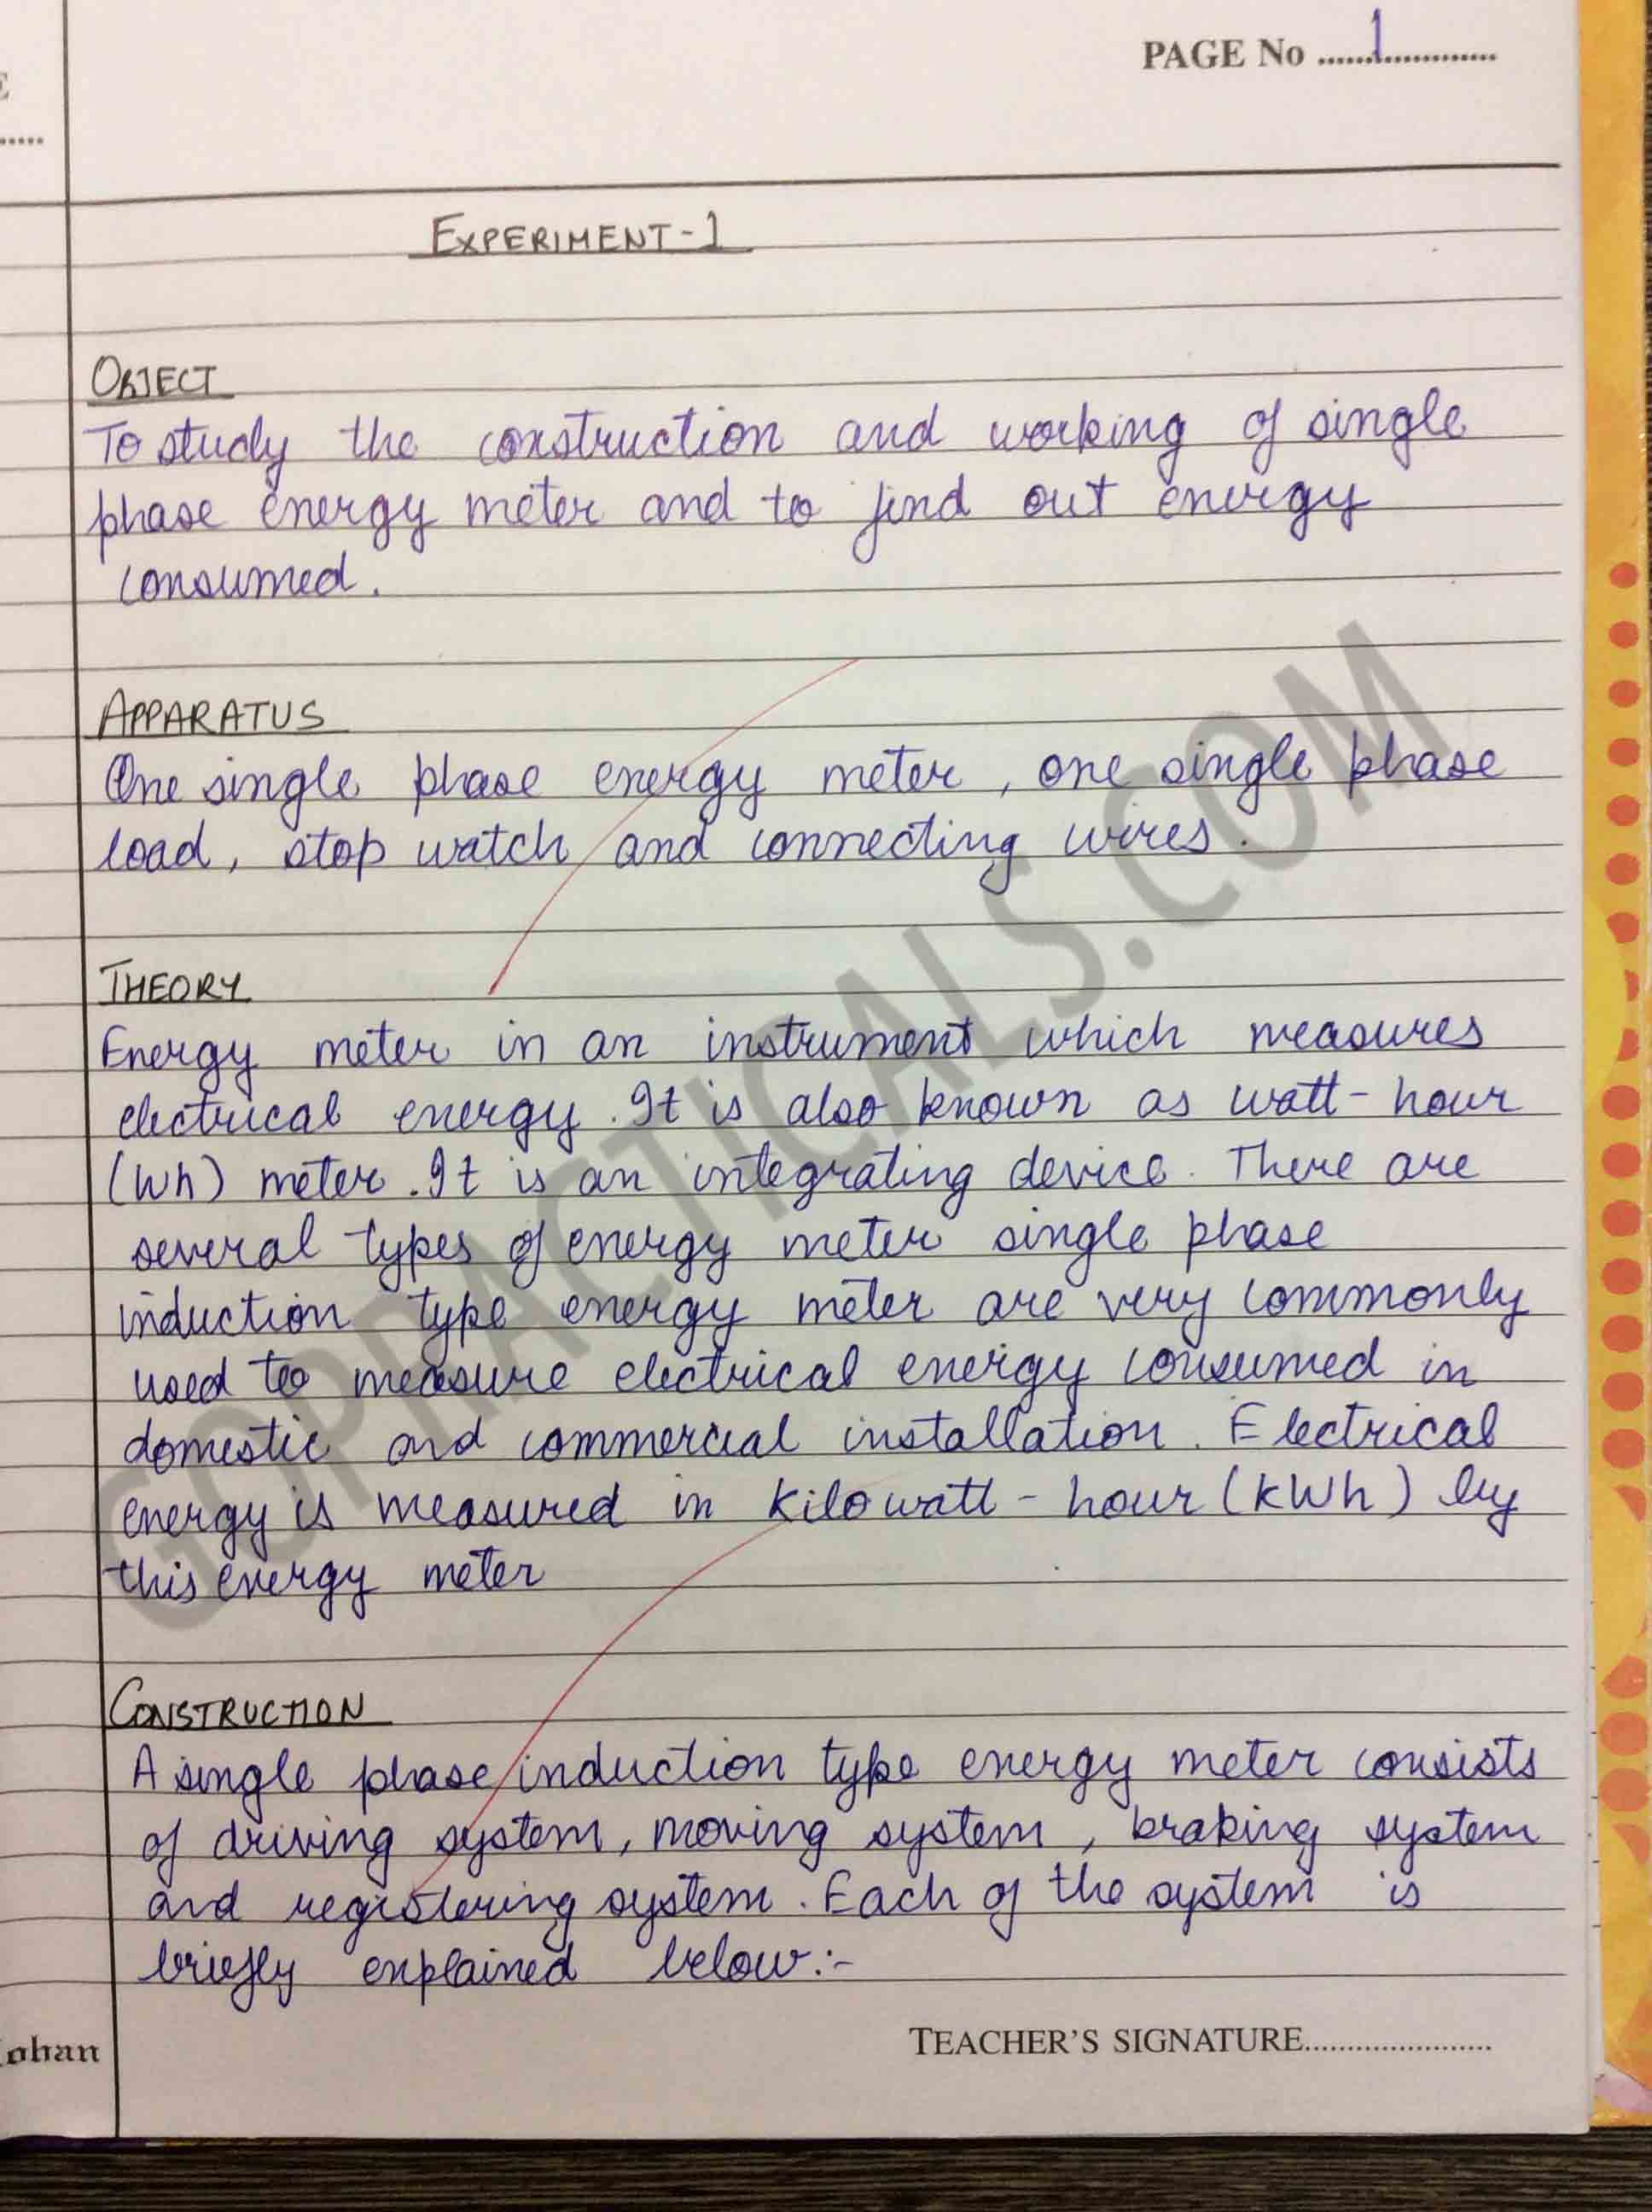 PAGE No ......1..............
EXPERIMENT-1
OBJECT
To study the construction and working of single
phase energy meter and to find out energy
consumed.
APPARATUS
One single phase energy meter, one single phase
load, stop watch and connecting wires.
THEORY
Energy meter in an instrument which measures
electrical energy. It is also known as watt-hour
(Wh) meter. It is an integrating device. There are
several types of energy meter single phase
induction type energy meter are very commonly
used to measure electrical energy consumed in
domestic and commercial installation. Electrical
energy is measured in kilowatt-hour (kWh) by
this energy meter
CONSTRUCTION
A single phase induction type energy meter consists
of driving system, moving system, braking system
and registering system. Each of the system is
briefly explained below:-
TEACHER'S SIGNATURE......................
ohan
GOPRACTICALS.COM